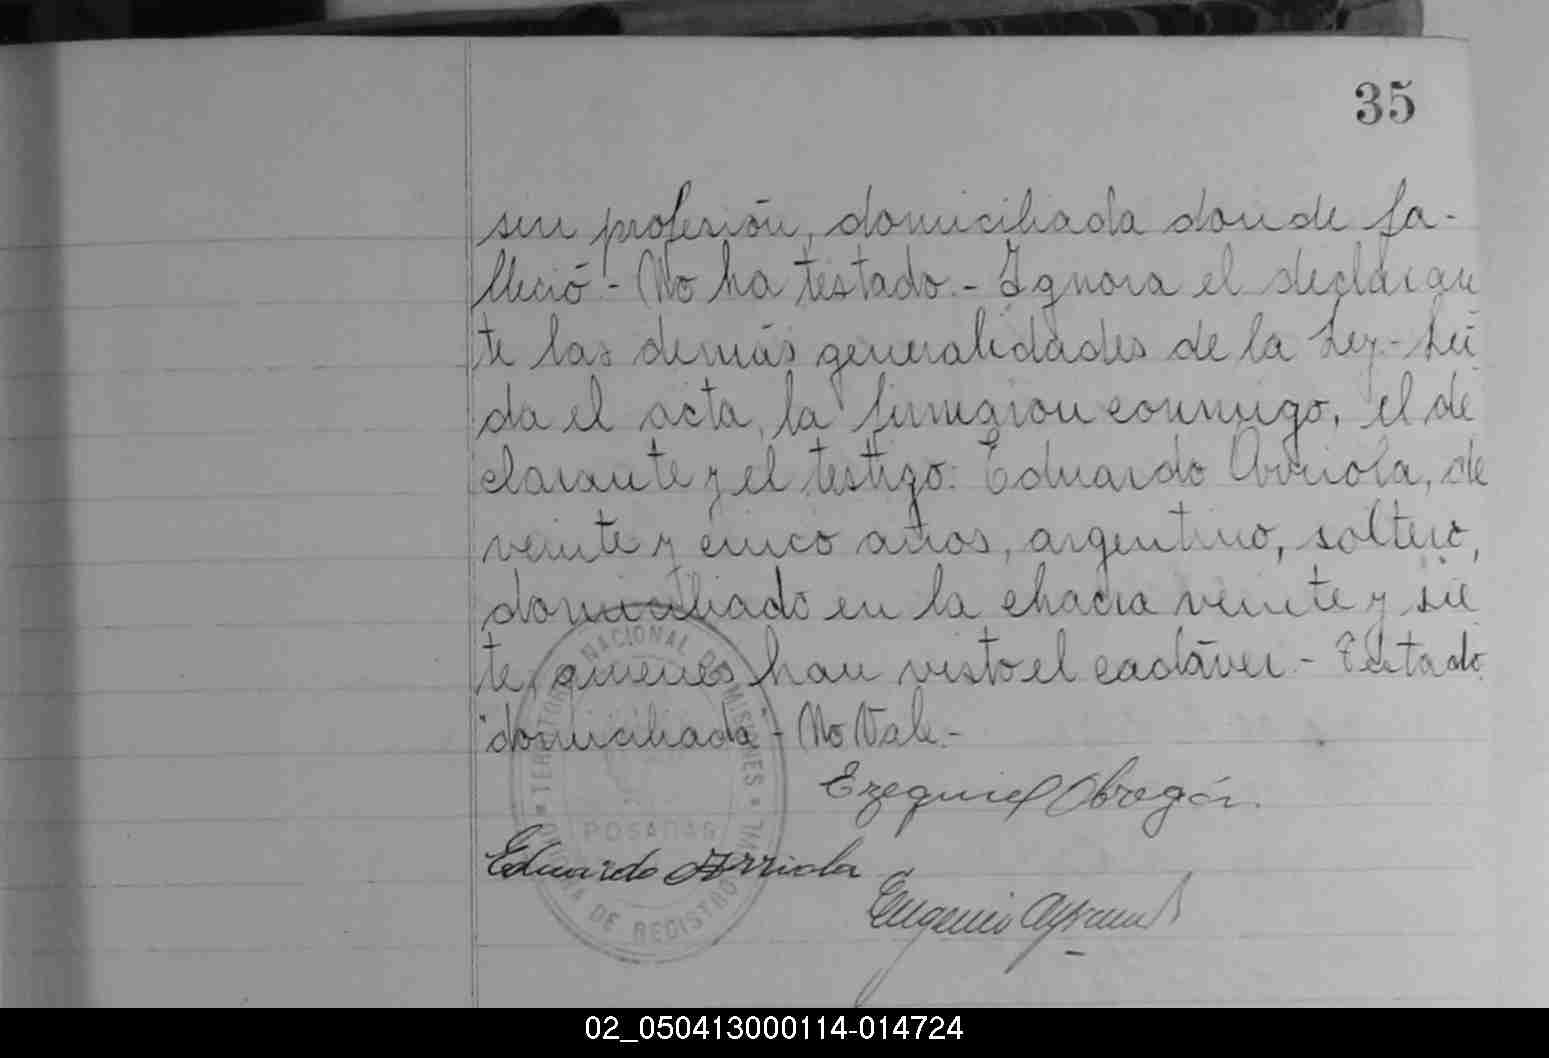 35
sin profesión, domiciliada donde fa-
lleció.- No ha testado.- Ignora el declaran
te las demás generalidades de la Ley.- Leí
da el acta, la firmaron conmigo, el de
clarante y el testigo: Eduardo Arriola, de
veinte y cinco años, argentino, soltero,
domiciliado en la chacra veinte y sie
te, quienes han visto el cadáver.- Testado
"domiciliada"- No Vale.-
Ezequiel Obregón.
Eduardo Arriola
Eugenio
TERRITORIO NACIONAL DE MISIONES
POSADAS
OFICINA DE REGISTRO CIVIL
02_050413000114-014724